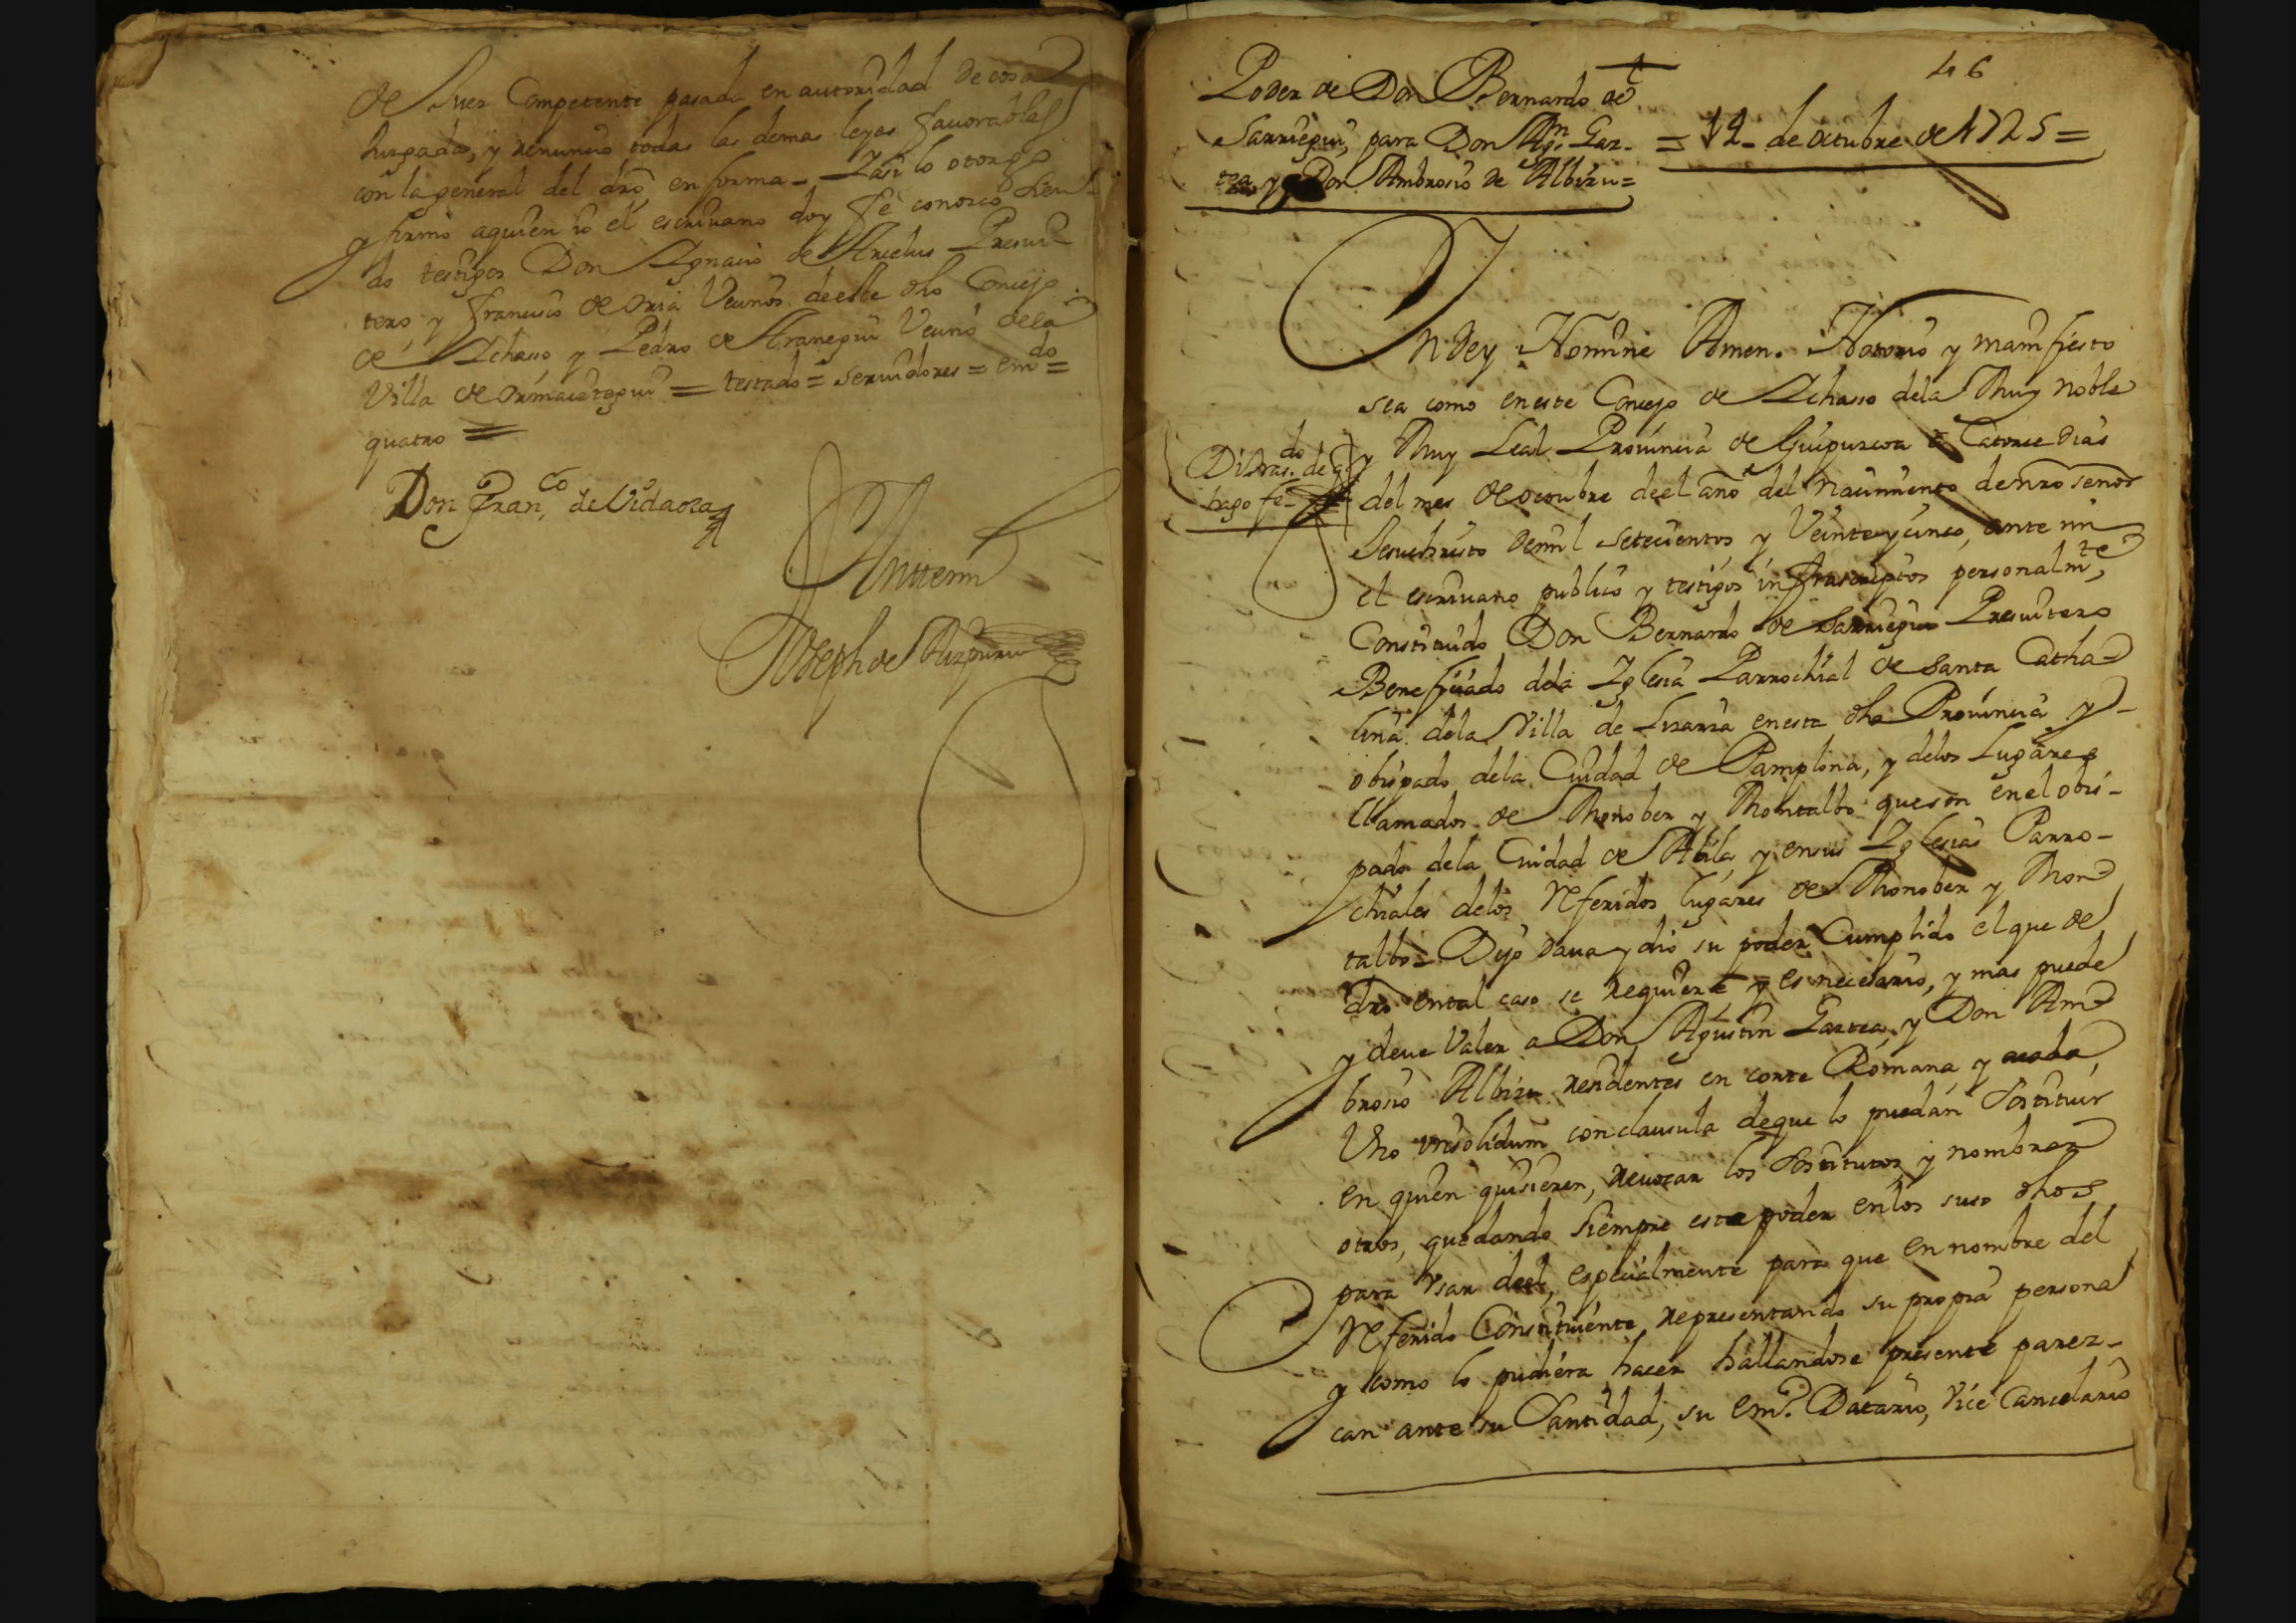 de Juez Competente pasada en autoridad de cosa
Juzgada, y renuncio todas las demas leyes favorables
con la general del dro en forma = Y asi lo otorgo
y firmo aquien io el escriuano doy fe conozco sien
do testigos Don Ignacio de Arcelus Presui-
tero, y francisco de oria Vecinos de este dho Concejo
de Ichasso y Pedro de Aranegui Vecino dela
Villa de ormaiztegui = testado = seruidores = em.do =
quatro =
Don Fran.co de Vidaoza
Antemi
Joseph de Aizpuru
46
Poder de Don Bernardo de
Sarriegui, para Don Ag.n Gar-
zea y Don Ambrosio de Albizu =
= 12 - de octubre de 1725 =
In Dey Nomine Amen. Notorio y manifiesto
sea como en este Concejo de Ichasso dela Muy noble
y Muy Leal Prouincia de Guipuzcoa a Catorce dias
del mes de octubre de el año del nacimiento de nro señor
hago fe
Jesuchristo demil setecientos y Veinte y cinco, ante mi
el escriuano publico y testigos infrascriptos personalm.te
Constituido Don Bernardo de Sarriegui Presuitero
Beneficiado dela Iglesia Parrochial de Santa Catha-
lina dela Villa de Lizarza en esta dha Prouincia y
obispado dela Ciudad de Pamplona, y delos Lugares
llamados de Monober y Montalbo que son en el obis-
pado dela Ciudad de Abila, y en sus Iglesias Parro-
chiales delos Referidos lugares de Monober y Mon
talbo = Dijo daua y dio su poder Cumplido el que de
dro en tal caso se requiere y es necesario, y mas puede
y deue Valer a Don Agustin Garzea, y Don Am
brosio Albizu residentes en corte Romana y acada
Uno insolidum con clausula de que lo puedan Sostituir
en quien quisieren, reuocar los Sostitutos y nombrar
otros, quedando siempre este poder en los suso dhos
para Vsar de el, especialmente para que en nombre del
Referido Constituiente representando su propia persona
y como lo pudiera hacer hallandose presente parez-
can ante su Santidad, su em.ª Datario, Vice Cancelario